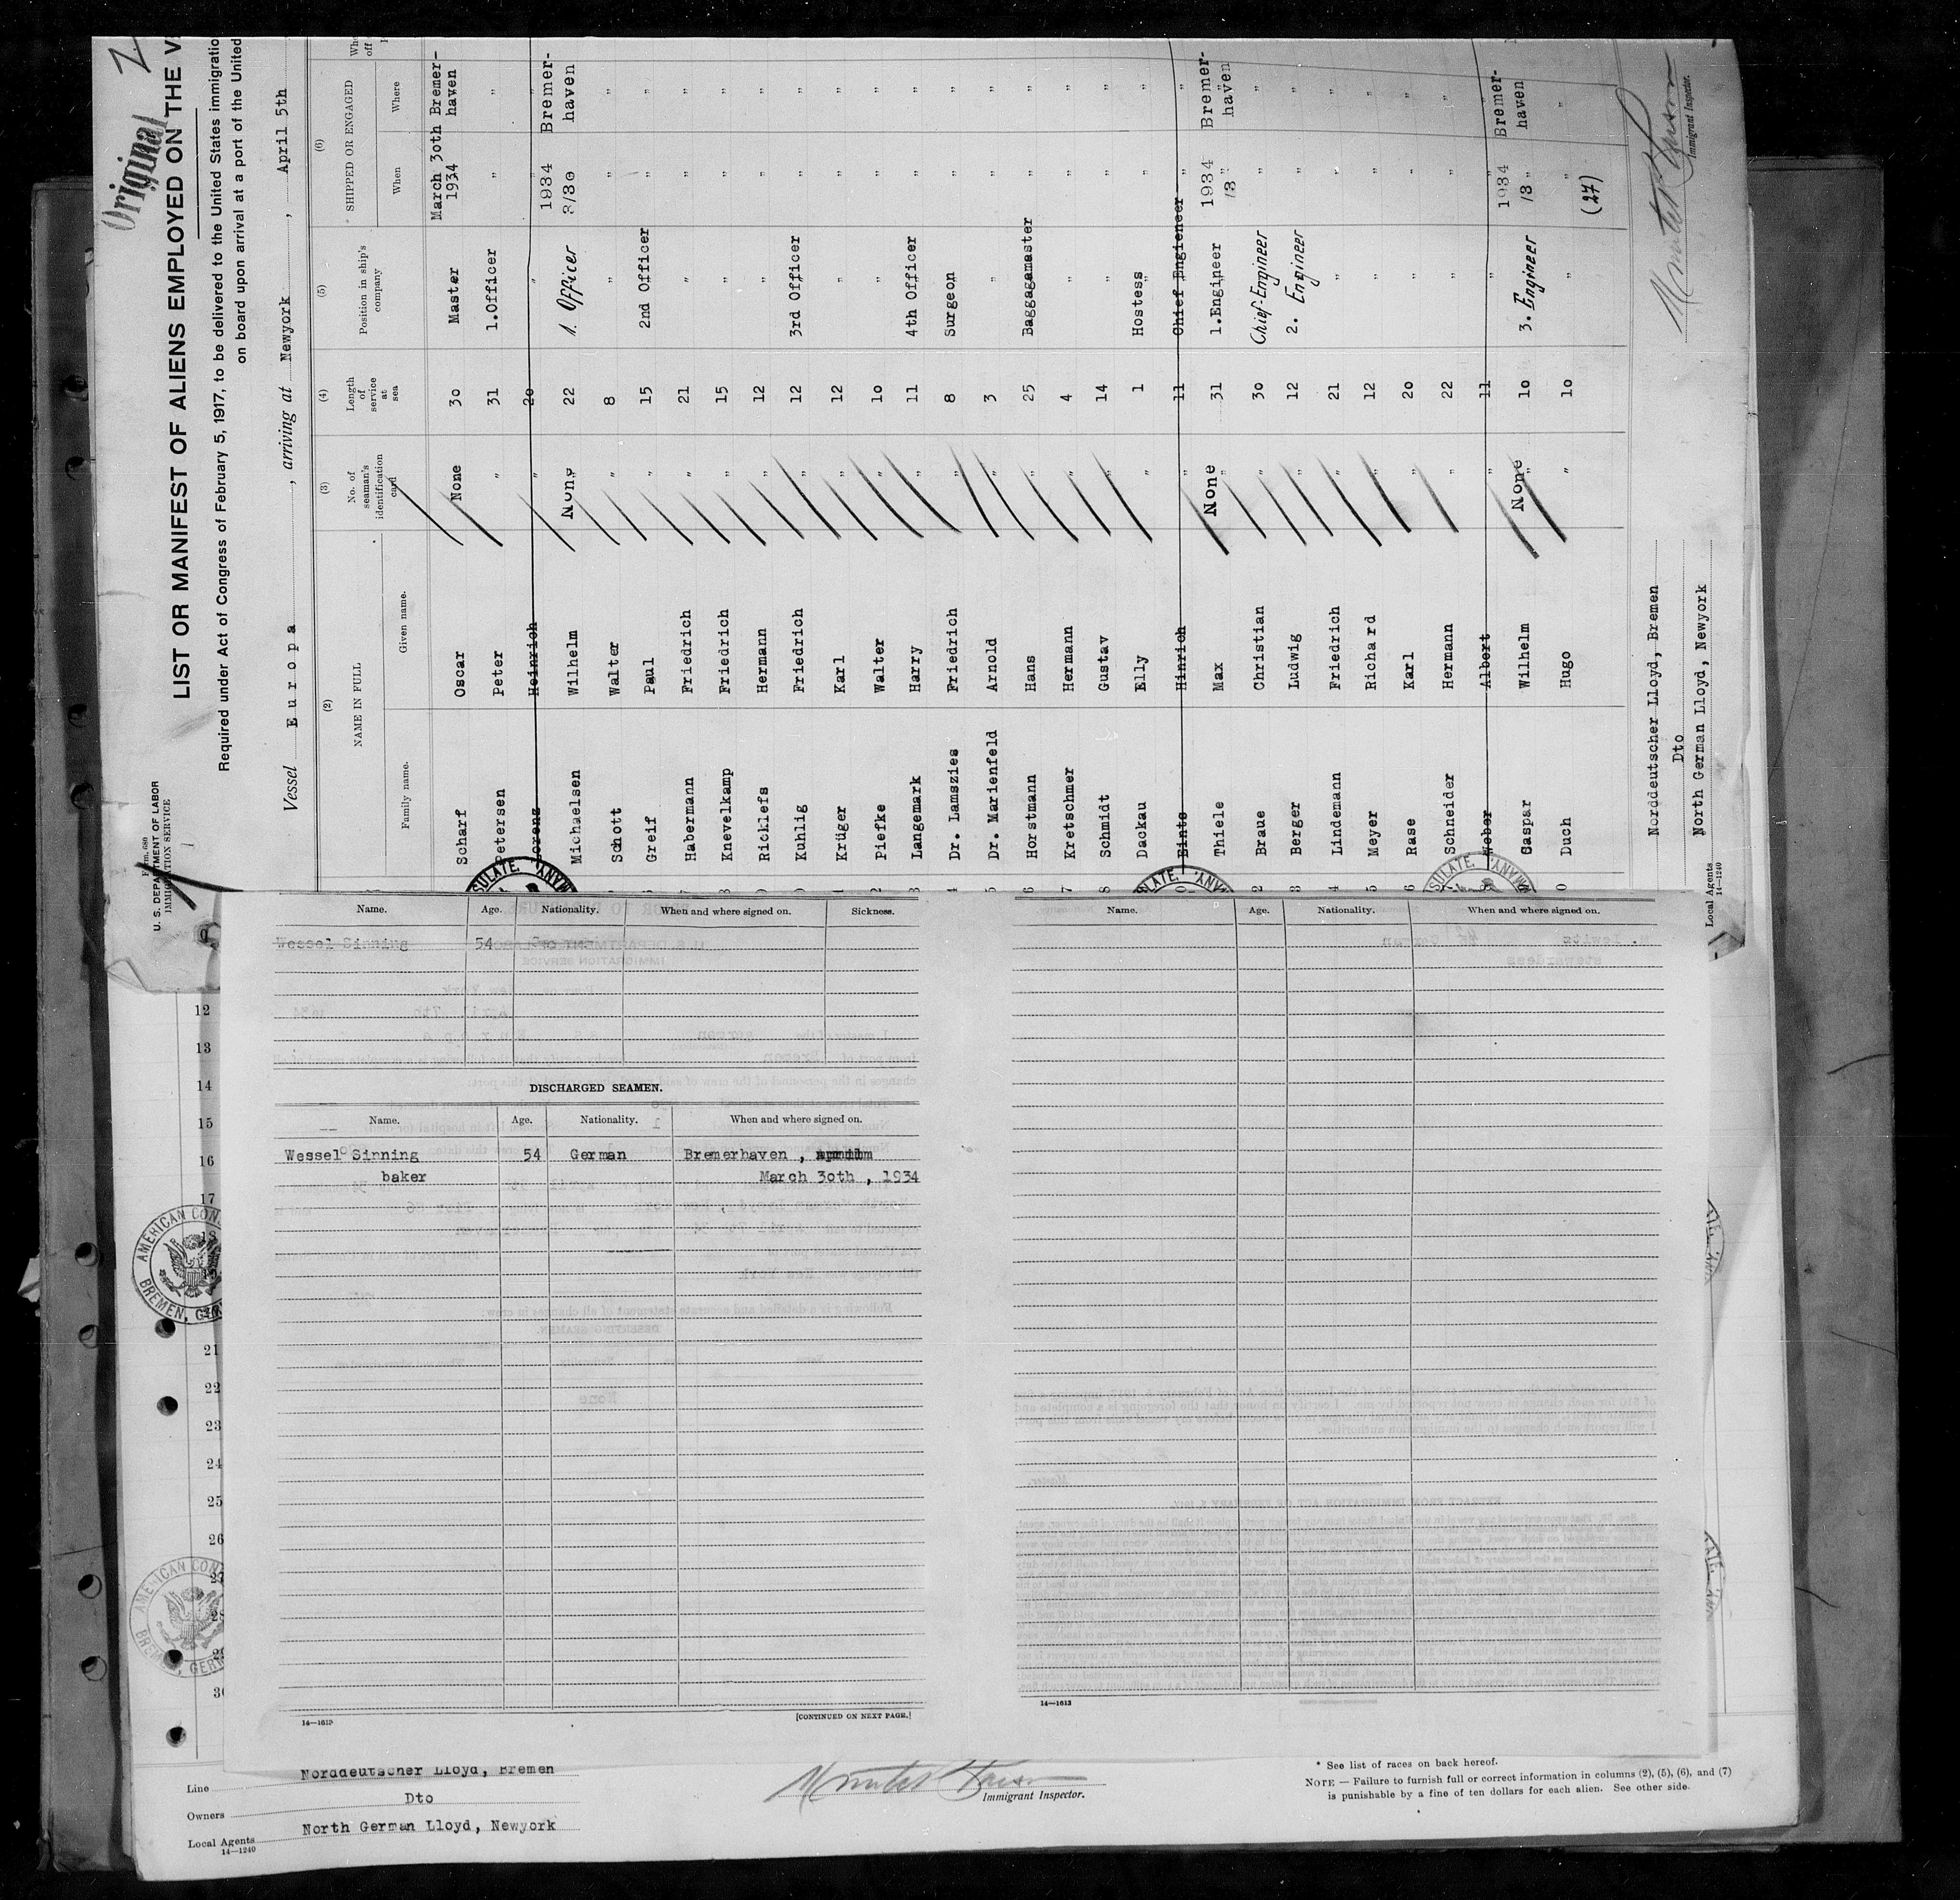 Original
U. S. DEPARTMENT OF LABOR
IMMIGRATION SERVICE
LIST OR MANIFEST OF ALIENS EMPLOYED ON THE
Required under Act of Congress of February 5, 1917, to be delivered to the United States
on board upon arrival at a port of the United
Vessel Europa, arriving at Newyork, April 5th
(2) (3) (4) (5) (6)
NAME IN FULL
Family name. Given name.
No. of seaman's identification card
Length of service at sea
Position in ship's company
SHIPPED OR ENGAGED
When Where
Scharf Oscar None 30 Master March 30th 1934 Bremer-haven
Petersen Peter " 31 1.Officer " "
Heinrich " 20 " " "
Michaelsen Wilhelm None 22 1. Officer 1934 3/30 Bremer-haven
Schott Walter " 8 " " "
Greif Paul " 15 2nd Officer " "
Habermann Friedrich " 21 " " "
Knevelkamp Friedrich " 15 " "
Ricklefs Hermann " 12 " "
Kuhlig Friedrich " 12 3rd Officer " "
Krüger Karl " 12 " " "
Piefke Walter " 10 " " "
Langemark Harry " 11 4th Officer " "
Dr. Lamszies Friedrich " 8 Surgeon " "
Dr. Marienfeld Arnold " 3 " " "
Horstmann Hans " 25 Baggagemaster " "
Kretschmer Hermann " 4 " " "
Schmidt Gustav " 14 " " "
Dackau Elly " 1 Hostess " "
Hints Hinrich " 11 Chief Engieneer " "
Thiele Max None 31 1.Engineer 1934 Bremer-haven
Braue Christian " 30 Chief-Engineer " "
Berger Ludwig " 12 2. Engineer " "
Lindemann Friedrich " 21 " " "
Meyer Richard " 12 " " "
Rase Karl " 20 " " "
Schneider Hermann " 22 " " "
Weber Albert " 11 " " "
Caspar Wilhelm None 10 3. Engineer 1934 Bremer-haven
Duch Hugo " 10 " " "
(27)
Norddeutscher Lloyd, Bremen
Dto
Local Agents North German Lloyd, Newyork
14—1240
Immigrant Inspector.
Name. Age. Nationality. When and where signed on. Sickness.
Wessel Sinning 54
DISCHARGED SEAMEN.
Name. Age. Nationality. When and where signed on.
Wessel Sinning 54 German Bremerhaven ,
baker March 30th , 1934
14—1613
[CONTINUED ON NEXT PAGE.]
Name. Age. Nationality. When and where signed on.
14—1613
12
13
14
15
16
17
18
21
22
23
24
25
26
AMERICAN CON
BREMEN, GER
AMERICAN CON
BREMEN, GERM
Line Norddeutscher Lloyd, Bremen
Owners Dto
Local Agents North German Lloyd, Newyork
14—1240
Immigrant Inspector.
* See list of races on back hereof.
NOTE — Failure to furnish full or correct information in columns (2), (5), (6), and (7)
is punishable by a fine of ten dollars for each alien. See other side.